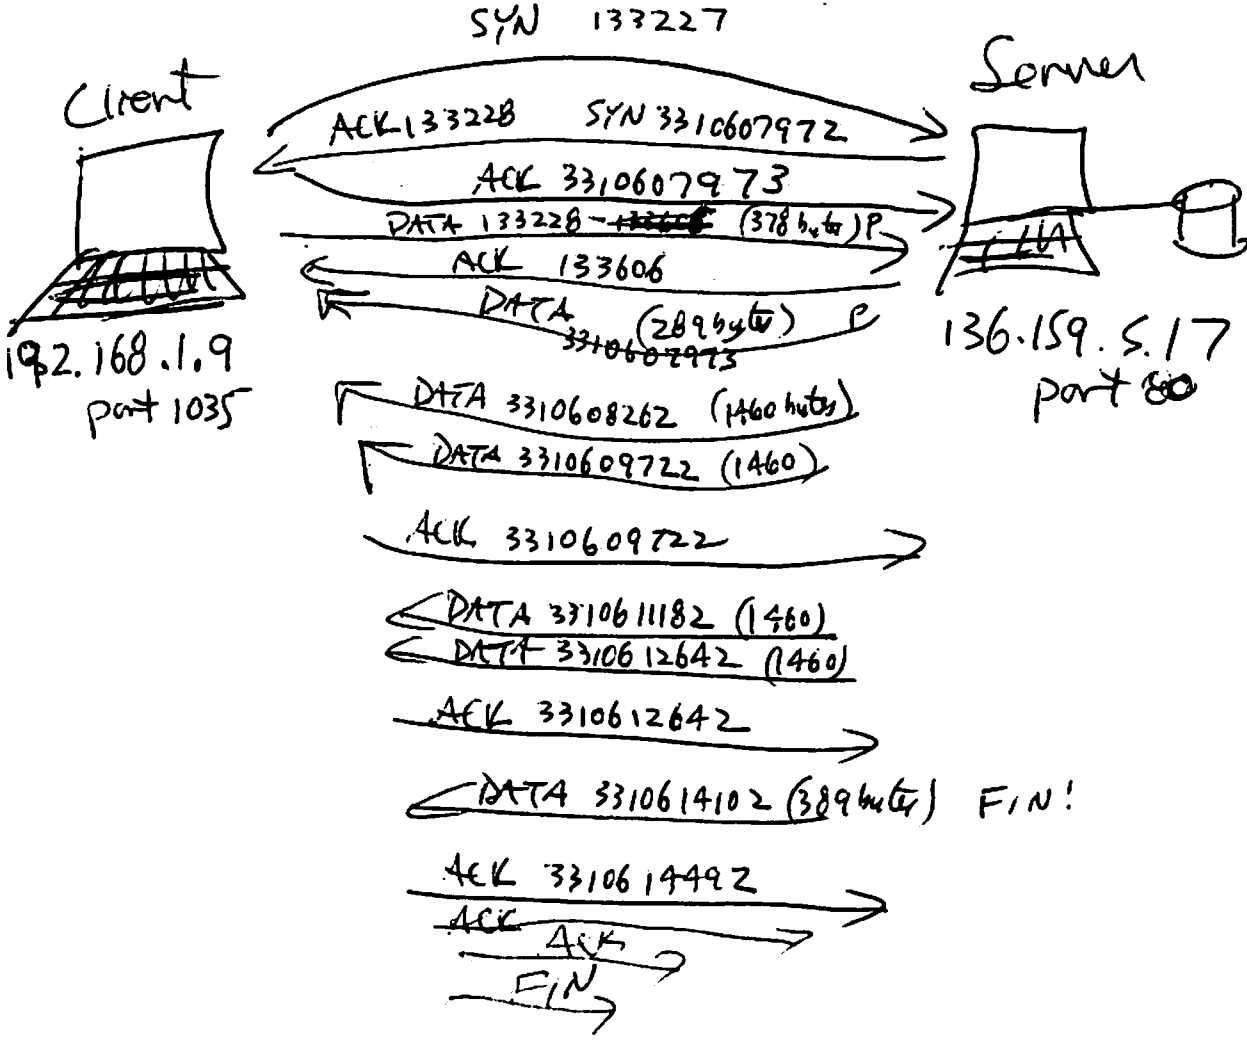 SYN 133227
Client
Server
ACK 133228 SYN 3310607972
ACK 3310607973
DATA 133228- (378 bytes) P
ACK 133606
DATA (289 bytes) P
3310607973
192.168.1.9
port 1035
136.159.5.17
port 80
DATA 3310608262 (1460 bytes)
DATA 3310609722 (1460)
ACK 3310609722
DATA 3310611182 (1460)
DATA 3310612642 (1460)
ACK 3310612642
DATA 3310614102 (389 bytes) FIN!
ACK 3310614492
ACK
ACK
FIN